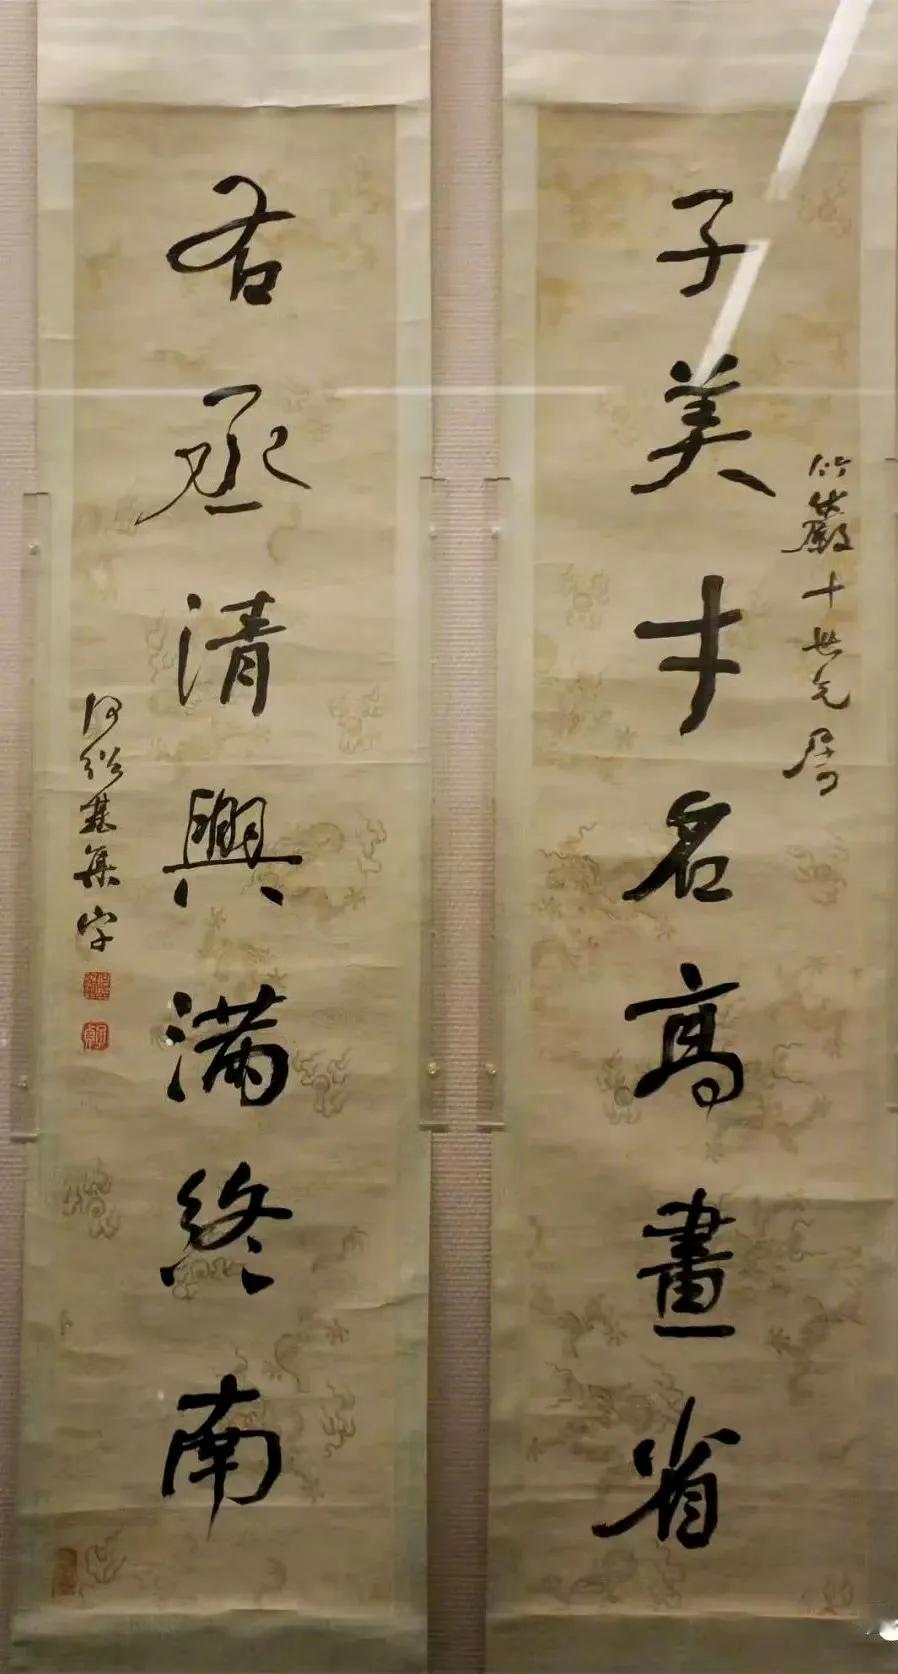 子美才名高畫省
竹巖十世兄屬
右丞清興滿終南
何紹基集字